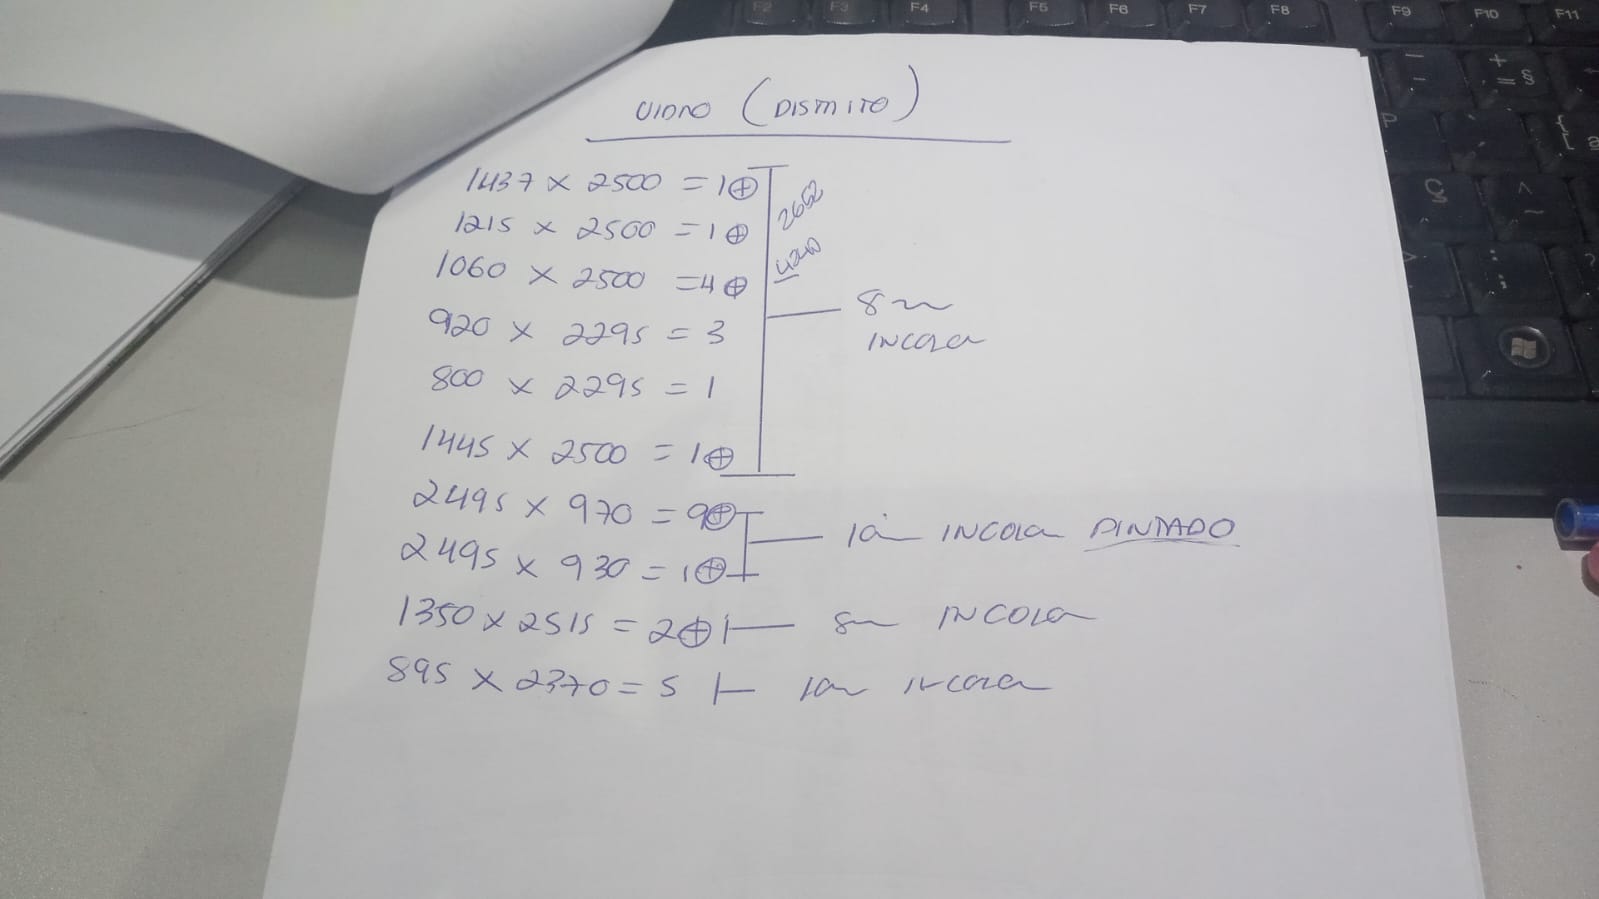 VIDRO (DISTRITO)
1437 x 2500 = 1⊕
1215 x 2500 = 1⊕
2662
1060 x 2500 = 4⊕
4240
920 x 2295 = 3
8m
INCOLOR
800 x 2295 = 1
1445 x 2500 = 1⊕
2495 x 970 = 9⊕
INCOLOR PINTADO
2495 x 930 = 1⊕
1350 x 2515 = 2⊕ 8m INCOLOR
895 x 2370 = 5 10m INCOLOR
F2 F3 F4 F5 F6 F7 F8 F9 F10 F11
P
Ç